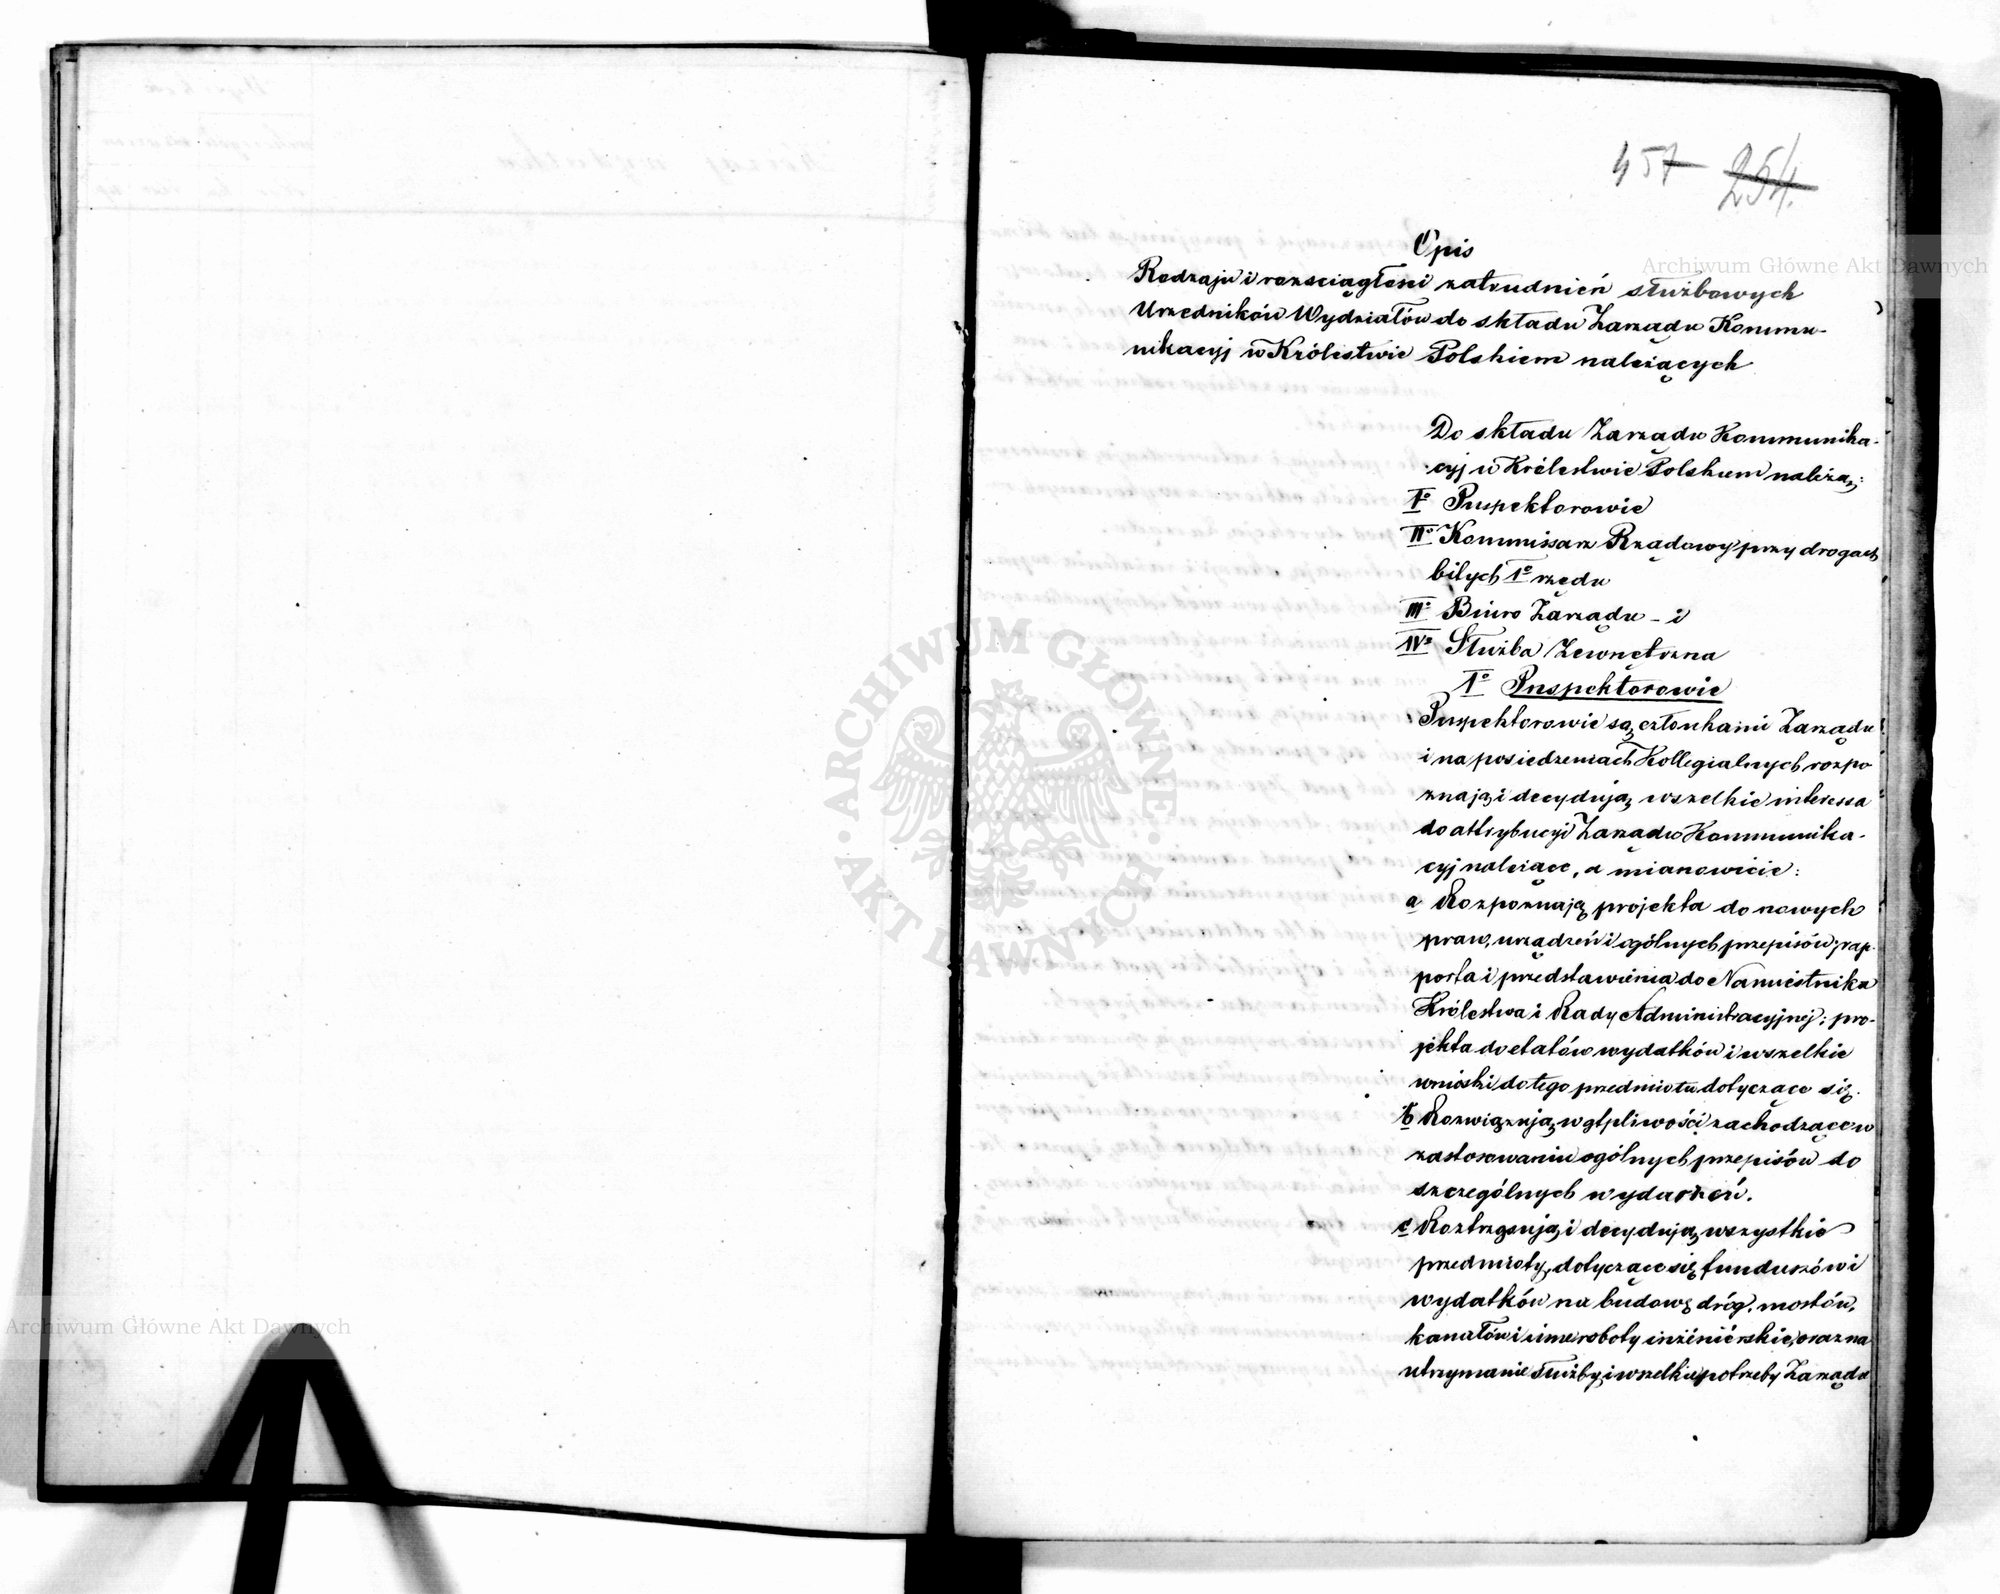 457 254.
Opis
Rodzaju i rozsciągłości zatrudnień służbowych
Urzedników Wydziałów do składu Zarządu Kommu-
nikacyj w Królestwie Polskiem należących
Do składu Zarządu Kommunika-
cyj w Królestwie Polskiem należą:
I° Inspektorowie
II° Kommissarz Rządowy przy drogach
bitych 1° rzędu
III° Biuro Zarządu - i
IV° Służba Zewnętrzna
I° Inspektorowie
Inspektorowie są członkami Zarządu
i na posiedzeniach Kollegialnych rozpo
znają i decydują wszelkie interessa
do attrybucyi Zarządu Kommunika-
cyj należące, a mianowicie:
a Rozpoznają projekta do nowych
praw, urządzeń i ogólnych przepisów; rap-
porta i przedstawienia do Namiestnika
Królestwa i Rady Administracyjnej; pro-
jekta do etatów wydatków i wszelkie
wnioski do tego przedmiotu dotyczące się.
b Rozwiązują wątpliwości zachodzące w
zastosowaniu ogólnych przepisów do
szczególnych wydarzeń.
c Roztrząsują i decydują wszystkie
przedmioty, dotyczące się funduszów i
wydatków na budowę dróg, mostów,
kanałów i inne roboty inżenierskie, oraz na
utrzymanie służby i wszelkie potrzeby Zarządu
Archiwum Główne Akt Dawnych
Archiwum Główne Akt Dawnych
ARCHIWUM GŁÓWNE AKT DAWNYCH